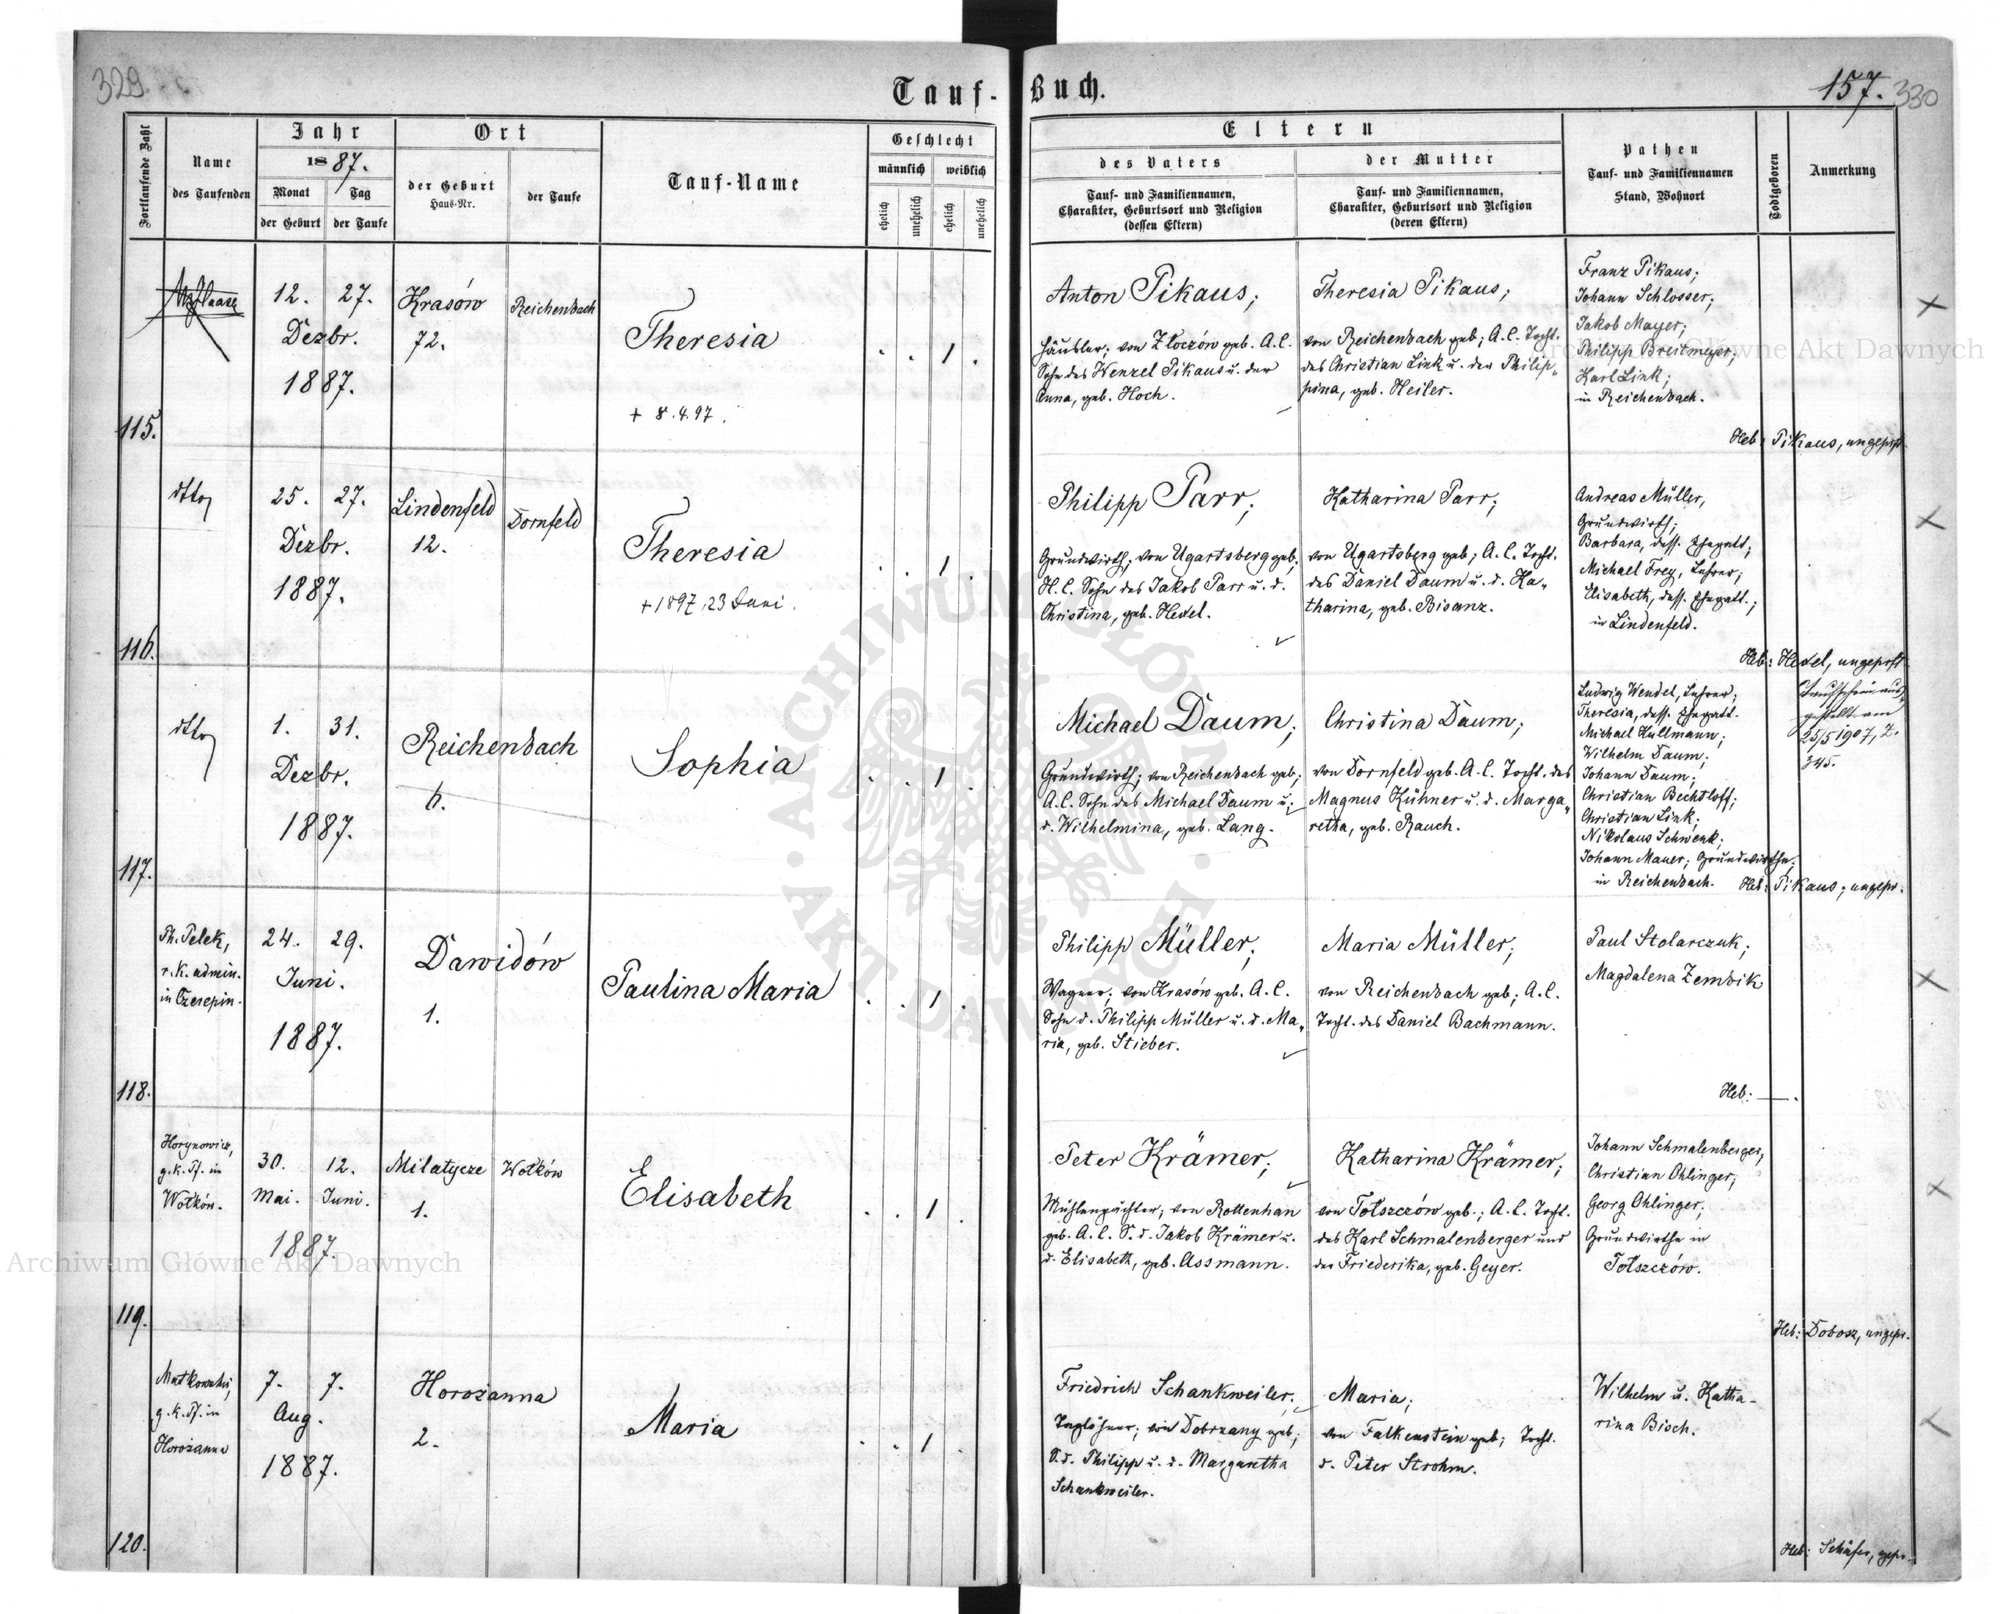 329.
Tauf-Buch.
157. 330
Fortlaufende Zahl
Name
des Taufenden
Jahr
1887.
Monat
der Geburt
Tag
der Taufe
Ort
der Geburt
Haus-Nr.
der Taufe
Tauf-Name
Geschlecht
männlich
weiblich
ehelich
unehelich
ehelich
unehelich
Eltern
des Vaters
Tauf- und Familiennamen,
Charakter, Geburtsort und Religion
(dessen Eltern)
der Mutter
Tauf- und Familiennamen,
Charakter, Geburtsort und Religion
(deren Eltern)
Pathen
Tauf- und Familiennamen
Stand, Wohnort
Todtgeboren
Anmerkung
115.
12. 27.
Dezbr.
1887.
Krasów
72.
Reichenbach
Theresia
+ 8.4.97.
1
Anton Pikaus;
Häusler; von Złoczów geb. A.C.
Sohn des Wenzel Pikaus u. der
Anna, geb. Hoch.
Theresia Pikaus;
von Reichenbach geb; A.C. Tocht.
des Christian Link u. der Philip„
pina, geb. Heiler.
Franz Pikaus;
Johann Schlosser;
Jakob Mayer;
Philipp Breitmeyer;
Karl Link;
in Reichenbach.
Heb: Pikaus, ungeprft
116.
dtto
25. 27.
Dezbr.
1887.
Lindenfeld
12.
Dornfeld
Theresia
+ 1897, 23 Juni.
1
Philipp Parr;
Grundwirth; von Ugartsberg geb;
H.C. Sohn des Jakob Parr u. d.
Christina, geb. Hexel.
Katharina Parr;
von Ugartsberg geb; A.C. Tocht.
des Daniel Daum u. d. Ka„
tharina, geb. Bisanz.
Andreas Müller,
Grundwirth;
Barbara, dess. Ehegatt;
Michael Frey, Lehrer;
Elisabeth, dess. Ehegatt.;
in Lindenfeld.
Heb: Hexel, ungeprft
117.
dtto
1. 31.
Dezbr.
1887.
Reichenbach
6.
Sophia
1
Michael Daum;
Grundwirth; von Reichenbach geb;
A.C. Sohn des Michael Daum u.
d. Wilhelmina, geb. Lang.
Christina Daum;
von Dornfeld geb. A.C. Tocht. des
Magnus Kühner u. d. Marga„
retha, geb. Rauch.
Ludwig Wendel, Lehrer;
Theresia, dess. Ehegatt.
Michael Kullmann;
Wilhelm Daum;
Johann Daum;
Christian Bechtloff;
Christian Link;
Nikolaus Schwenk;
Johann Mauer; Grundwirthe;
in Reichenbach.
Heb: Pikaus; ungepr.
Taufschein aus„
gestellt am
25/5 1907, Z.
345.
118.
Th. Pelek,
r.k. admin.
in Czerepin.
24. 29.
Juni.
1887.
Dawidów
1.
Paulina Maria
1
Philipp Müller;
Wagner; von Krasów geb. A.C.
Sohn d. Philipp Müller u. d. Ma„
ria, geb. Stieber.
Maria Müller;
von Reichenbach geb; A.C.
Tocht. des Daniel Bachmann.
Paul Stolarczuk;
Magdalena Zembik
Heb: —.
119.
Horynowicz,
g.k. Pf. in
Wołków.
30. 12.
Mai. Juni.
1887.
Milatycze
1.
Wołków
Elisabeth
1
Peter Krämer;
Mühlenpächter; von Rottenhan
geb. A.C. S.d. Jakob Krämer u.
d. Elisabeth, geb. Assmann.
Katharina Krämer;
von Tołszczów geb.; A.C. Tocht.
des Karl Schmalenberger und
der Friederika, geb. Geyer.
Johann Schmalenberger,
Christian Ohlinger;
Georg Ohlinger;
Grundwirthe in
Tołszczów.
Heb: Dobosz, ungepr.
120.
Matkowski,
g.k. Pf. in
Horożanna
7. 7.
Aug.
1887.
Horożanna
2.
Maria
1
Friedrich Schankweiler;
Taglöhner; von Dobrzany geb;
S.d. Philipp u. d. Margaretha
Schankweiler.
Maria;
von Falkenstein geb; Tocht.
d. Peter Strohm.
Wilhelm u. Katha-
rina Bisch.
Heb: Schäfer, gepr.
Archiwum Główne Akt Dawnych
Archiwum Główne Akt Dawnych
ARCHIWUM GŁÓWNE AKT DAWNYCH